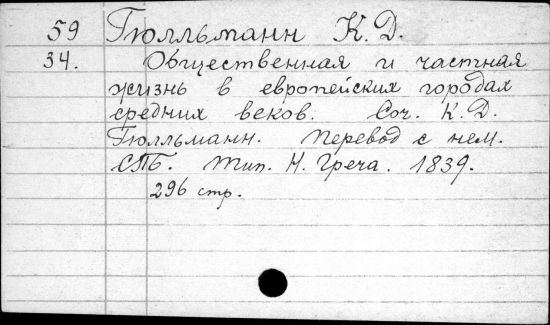 59 Гюлльманн К. Д.
34. Общественная и частная
жизнь в европейских городах
средних веков. Соч. К. Д.
Гюлльманн. Перевод с нем.
СПБ. Тип. Н. Греча. 1839.
296 стр.